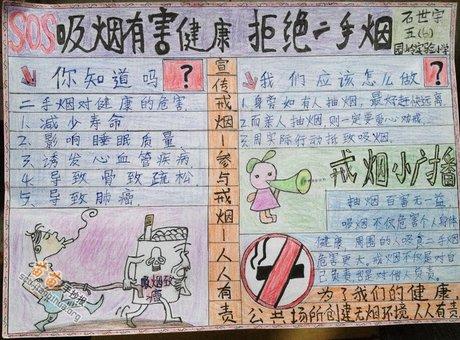 SOS吸烟有害健康 拒绝二手烟
石世宇
五(6)
园岭实验小学
你知道吗?
二手烟对健康的危害
1、减少寿命
2、影响睡眠质量
3、诱发心血管疾病
4、导致骨致疏松
5、导致肺癌
吸烟致癌
宣传戒烟-参与戒烟-人人有责
我们应该怎么做?
1、身旁如有人抽烟,最好赶快远离
2、而亲人抽烟则一定要耐心劝戒
3、用实际行动抵致吸烟
戒烟小广播
抽烟百害无一益
吸烟不仅危害个人身体
健康,周围的人吸食二手烟
危害更大,戒烟不仅是对自
己负责也是对他人负责。
为了我们的健康
公共场所创建无烟环境人人有责